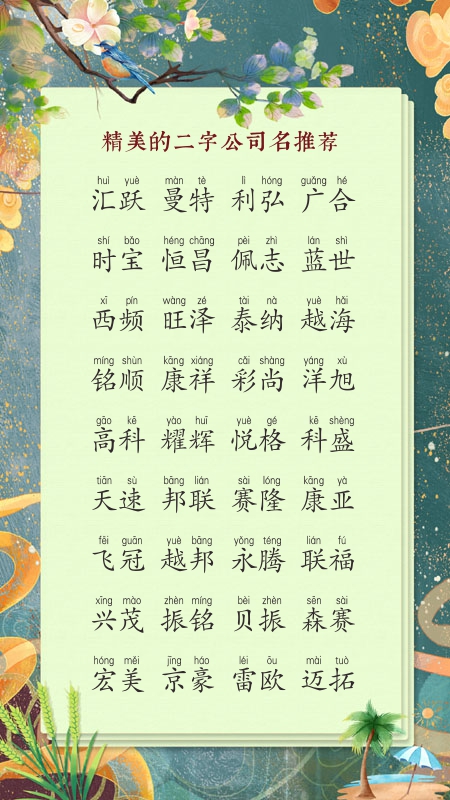 精美的二字公司名推荐
huì yuè màn tè lì hóng guǎng hé
汇跃 曼特 利弘 广合
shí bǎo héng chāng pèi zhì lán shì
时宝 恒昌 佩志 蓝世
xī pín wàng zé tài nà yuè hǎi
西频 旺泽 泰纳 越海
míng shùn kāng xiáng cǎi shàng yáng xù
铭顺 康祥 彩尚 洋旭
gāo kē yào huī yuè gé kē shèng
高科 耀辉 悦格 科盛
tiān sù bāng lián sài lóng kāng yà
天速 邦联 赛隆 康亚
fēi guān yuè bāng yǒng téng lián fú
飞冠 越邦 永腾 联福
xīng mào zhèn míng bèi zhèn sēn sài
兴茂 振铭 贝振 森赛
hóng měi jīng háo léi ōu mài tuò
宏美 京豪 雷欧 迈拓